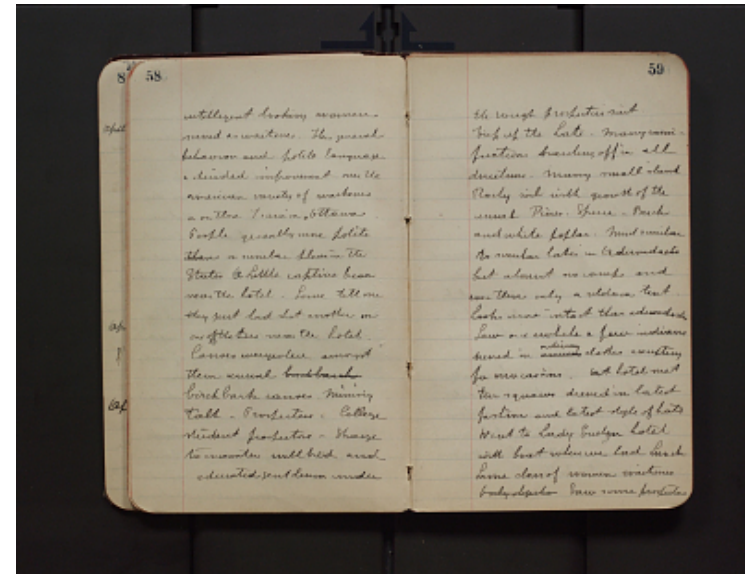 8 58
intelligent looking women
behavior and polite language
a decided improvement over the
american variety of waitress
as on the train, Ottawa
People generally more polite
than a similar place in the
States A little captive bear
near the hotel. Some tell me
they just had shot another on
near the hotel.
Canoes everywhere amongst
them several birchbark
birch bark canoes. Mining
Talk - Prospectors - College
student prospectors - Strange
to encounter well bred and
educated gentlemen under
59
the rough prospectors suit
Trip up the Lake. Many
branching off in all
directions. Many small island
Rocky with growth of the
usual Pines. Spruce - Birch
and white poplar. Most similar
to similar lakes in Adirondacks
but almost no camps and
only a tent
Looks more intact than adirondacks
Saw once in a while a few indians
ordinary
clothes excepting
for moccasins. At hotel met
two squaws dressed in latest
fashion and latest style of hats
Went to Lady Evelyn hotel
with boat where we had lunch
Same class of women waitress
Saw some prospectors
April